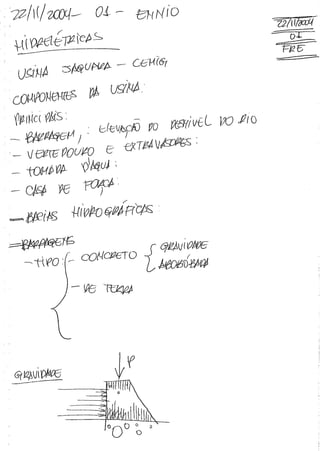 22/11/2004 - 01 - ENNIO
22/11/2004
01
FRE
HIDRELÉTRICAS
USINA JAGUARA - CEMIG
COMPONENTES DA USINA:
PRINCIPAIS:
- BARRAGEM: ELEVAÇÃO DO DESNÍVEL DO RIO
- VERTEDOURO E EXTRAVASORES:
- TOMADA D'ÁGUA:
- CASA DE FORÇA:
- BACIAS HIDROGRÁFICAS
- BARRAGENS
- TIPO: - CONCRETO { GRAVIDADE
ABOBÓBADA
- DE TERRA
P
GRAVIDADE